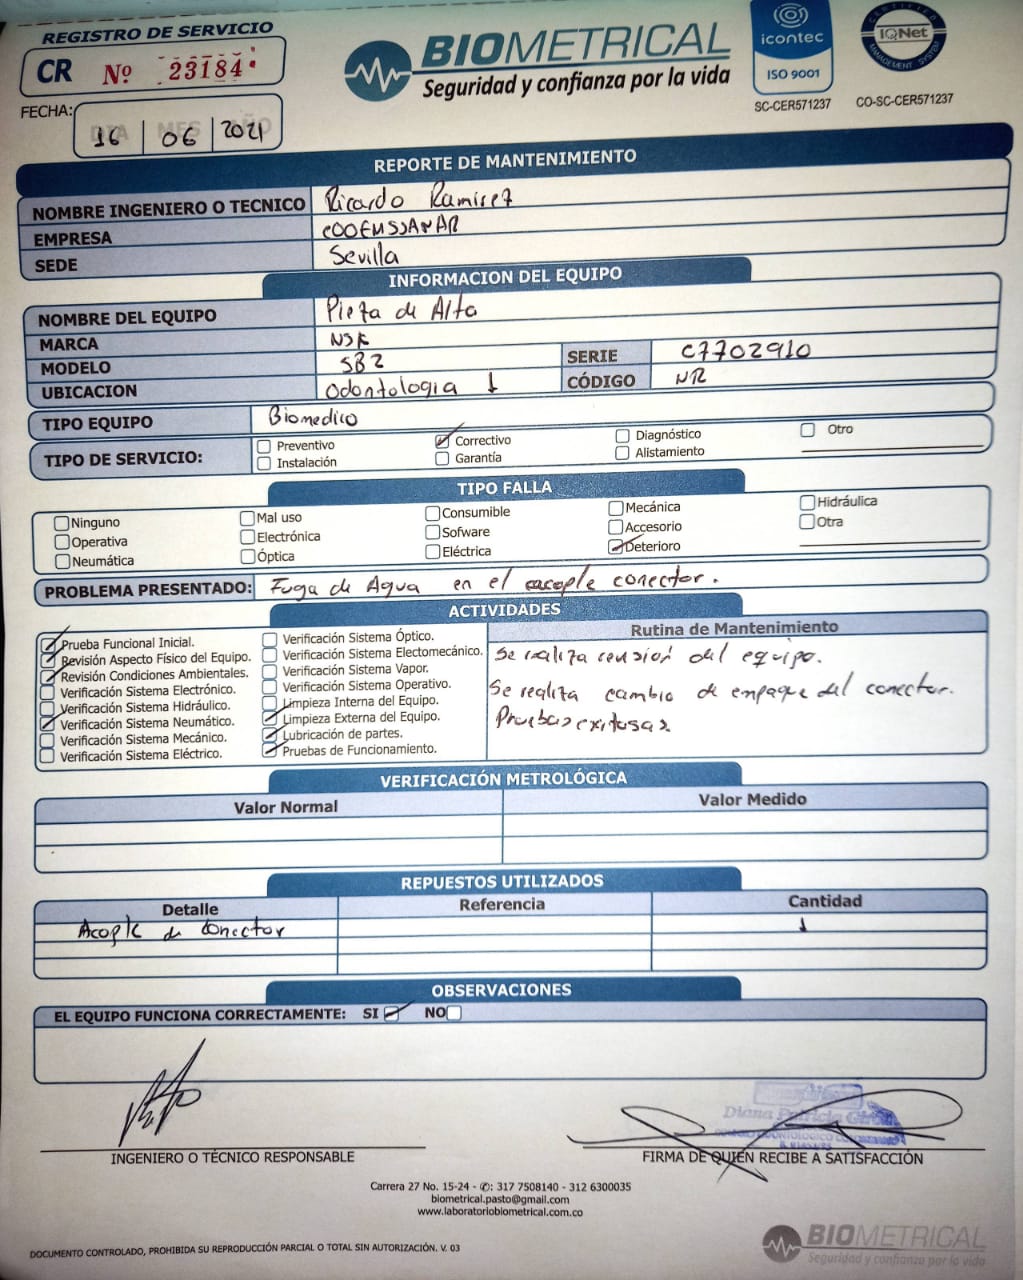 REGISTRO DE SERVICIO
CR Nº 23184
BIOMETRICAL
Seguridad y confianza por la vida
icontec
ISO 9001
SC-CER571237
CERTIFIED
IQNet
MANAGEMENT SYSTEM
CO-SC-CER571237
FECHA:
DIA MES AÑO
16 06 2021
REPORTE DE MANTENIMIENTO
NOMBRE INGENIERO O TECNICO Ricardo Ramirez
EMPRESA COOEMSSANAR
SEDE Sevilla
INFORMACION DEL EQUIPO
NOMBRE DEL EQUIPO Pieza de Alta
MARCA NSK
MODELO SB2 SERIE C7702910
UBICACION Odontologia 1 CÓDIGO NR
TIPO EQUIPO Biomedico
TIPO DE SERVICIO:
Preventivo Correctivo Diagnóstico Otro
Instalación Garantía Alistamiento
TIPO FALLA
Ninguno Mal uso Consumible Mecánica Hidráulica
Operativa Electrónica Sofware Accesorio Otra
Neumática Óptica Eléctrica Deterioro
PROBLEMA PRESENTADO: Fuga de Agua en el acople conector.
ACTIVIDADES
Prueba Funcional Inicial.
Revisión Aspecto Físico del Equipo.
Revisión Condiciones Ambientales.
Verificación Sistema Electrónico.
Verificación Sistema Hidráulico.
Verificación Sistema Neumático.
Verificación Sistema Mecánico.
Verificación Sistema Eléctrico.
Verificación Sistema Óptico.
Verificación Sistema Electomecánico.
Verificación Sistema Vapor.
Verificación Sistema Operativo.
Limpieza Interna del Equipo.
Limpieza Externa del Equipo.
Lubricación de partes.
Pruebas de Funcionamiento.
Rutina de Mantenimiento
Se realiza revisión del equipo.
Se realiza cambio de empaque del conector.
Pruebas exitosas
VERIFICACIÓN METROLÓGICA
Valor Normal Valor Medido
REPUESTOS UTILIZADOS
Detalle Referencia Cantidad
Acople de conector 1
OBSERVACIONES
EL EQUIPO FUNCIONA CORRECTAMENTE: SI NO
Diana Patricia
INGENIERO O TÉCNICO RESPONSABLE
FIRMA DE QUIEN RECIBE A SATISFACCIÓN
Carrera 27 No. 15-24 - ✆: 317 7508140 - 312 6300035
biometrical.pasto@gmail.com
www.laboratoriobiometrical.com.co
DOCUMENTO CONTROLADO, PROHIBIDA SU REPRODUCCIÓN PARCIAL O TOTAL SIN AUTORIZACIÓN. V. 03
BIOMETRICAL
Seguridad y confianza por la vida